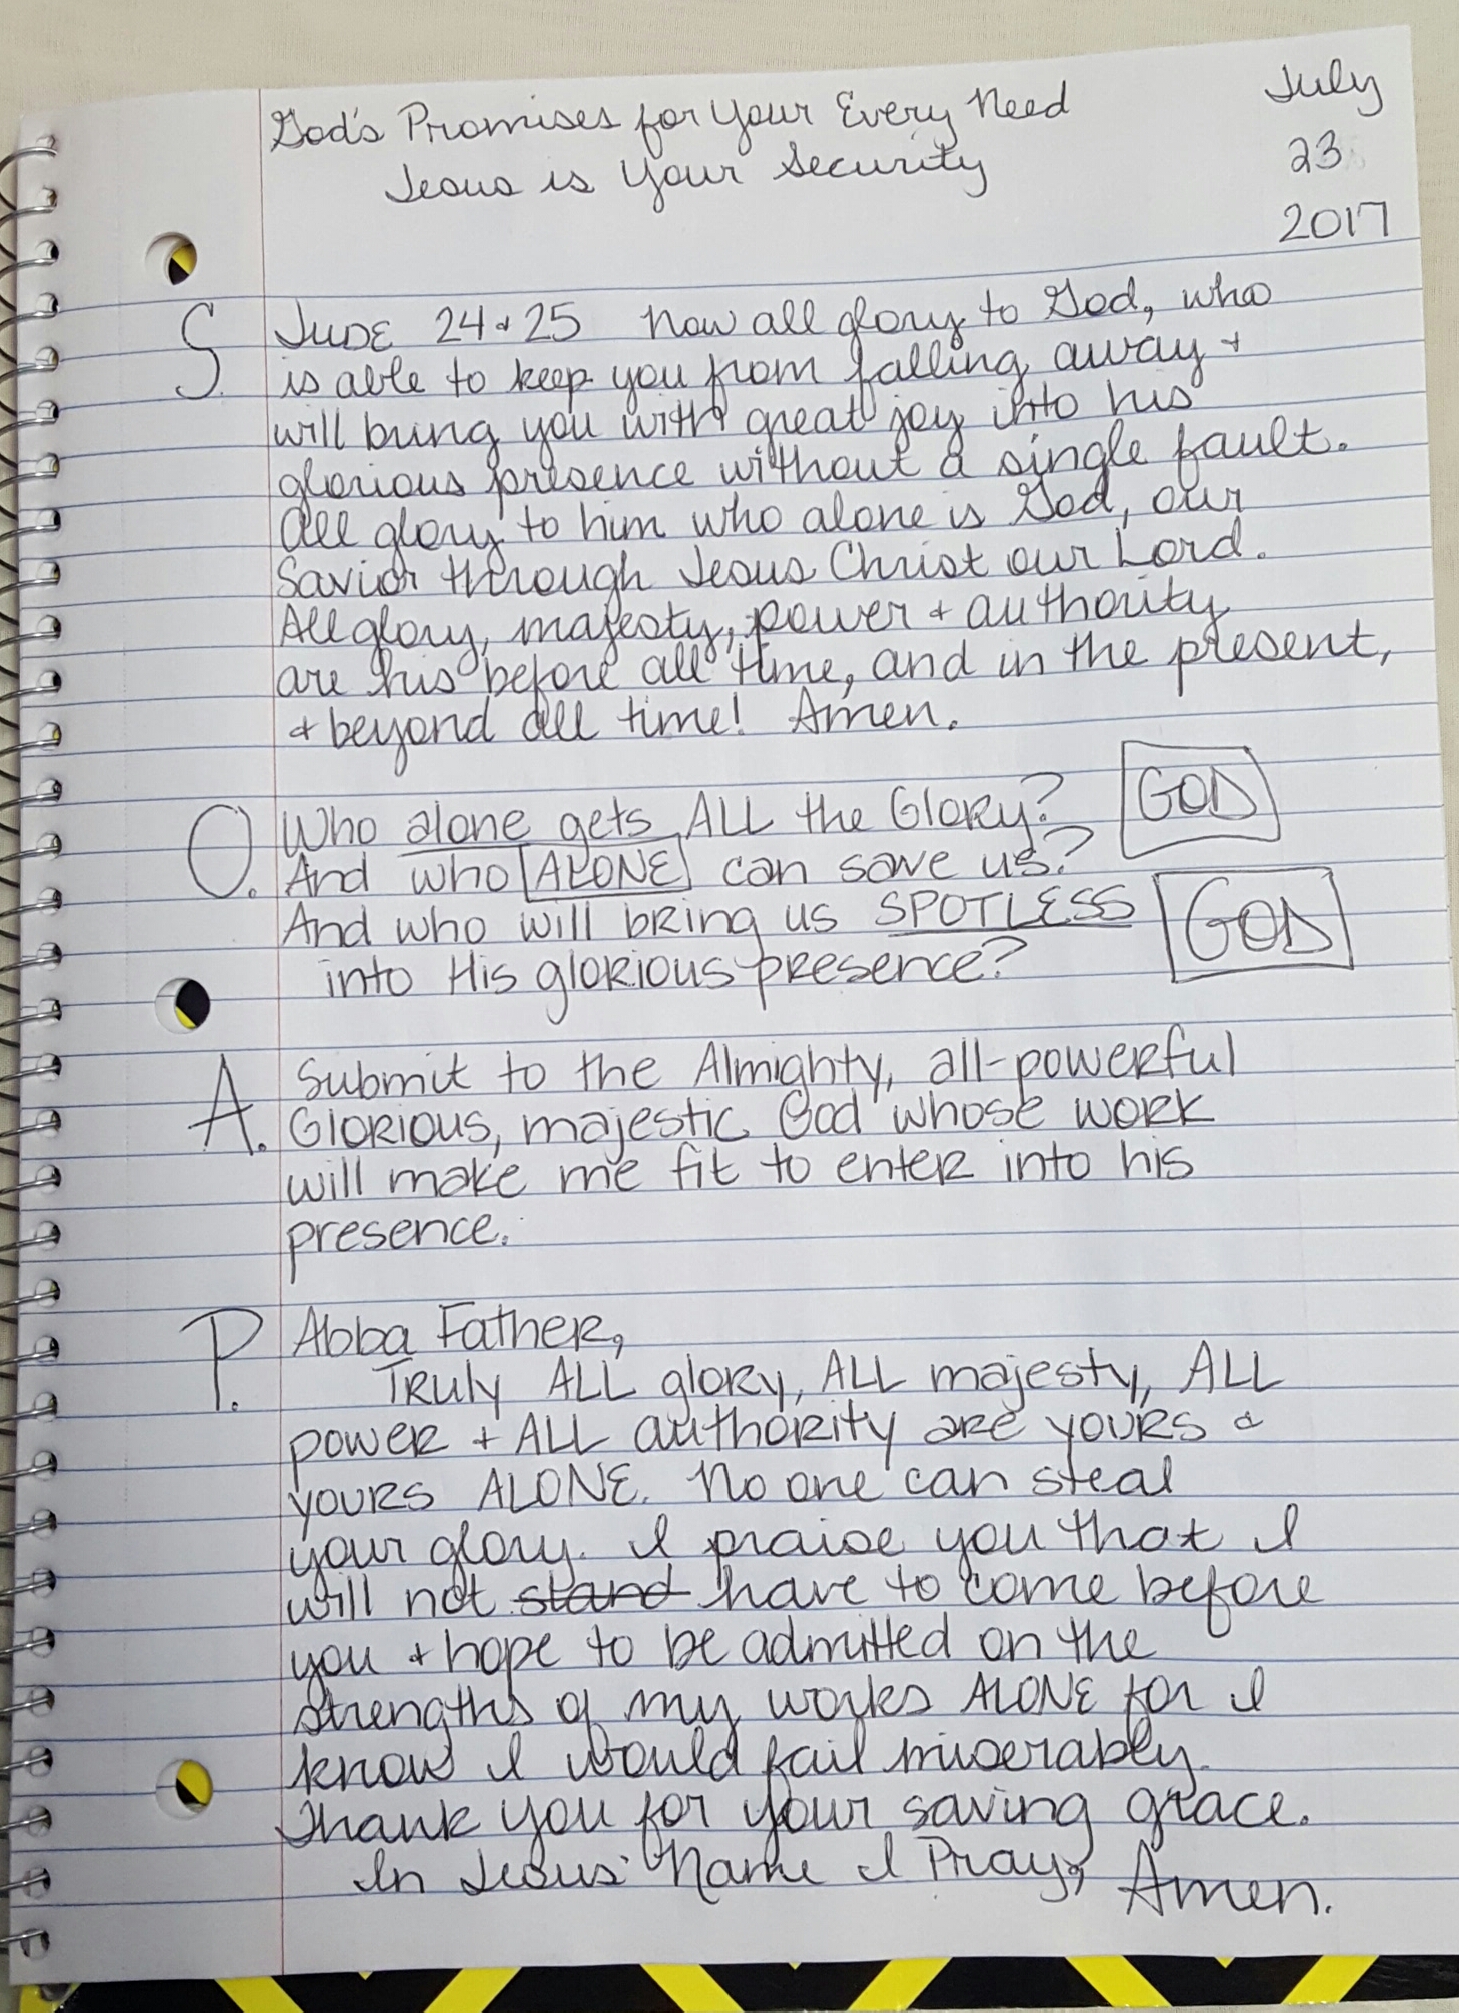 God's Promises for Your Every Need
Jesus is Your Security
July
23
2017
S. Jude 24 & 25 Now all glory to God, who
is able to keep you from falling away &
will bring you with great joy into his
glorious presence without a single fault.
All glory to him who alone is God, our
Savior through Jesus Christ our Lord.
All glory, majesty, power & authority
are his before all time, and in the present,
& beyond all time! Amen.
O. Who alone gets ALL the Glory? GOD
And who ALONE can save us?
And who will bring us SPOTLESS GOD
into His glorious presence?
A. Submit to the Almighty, all-powerful
Glorious, majestic God whose work
will make me fit to enter into his
presence.
P. Abba Father,
Truly ALL glory, ALL majesty, ALL
power & ALL authority are yours &
yours ALONE. No one can steal
your glory. I praise you that I
will not stand have to come before
you & hope to be admitted on the
strengths of my works ALONE for I
know I would fail miserably.
Thank you for your saving grace.
In Jesus' Name I Pray, Amen.